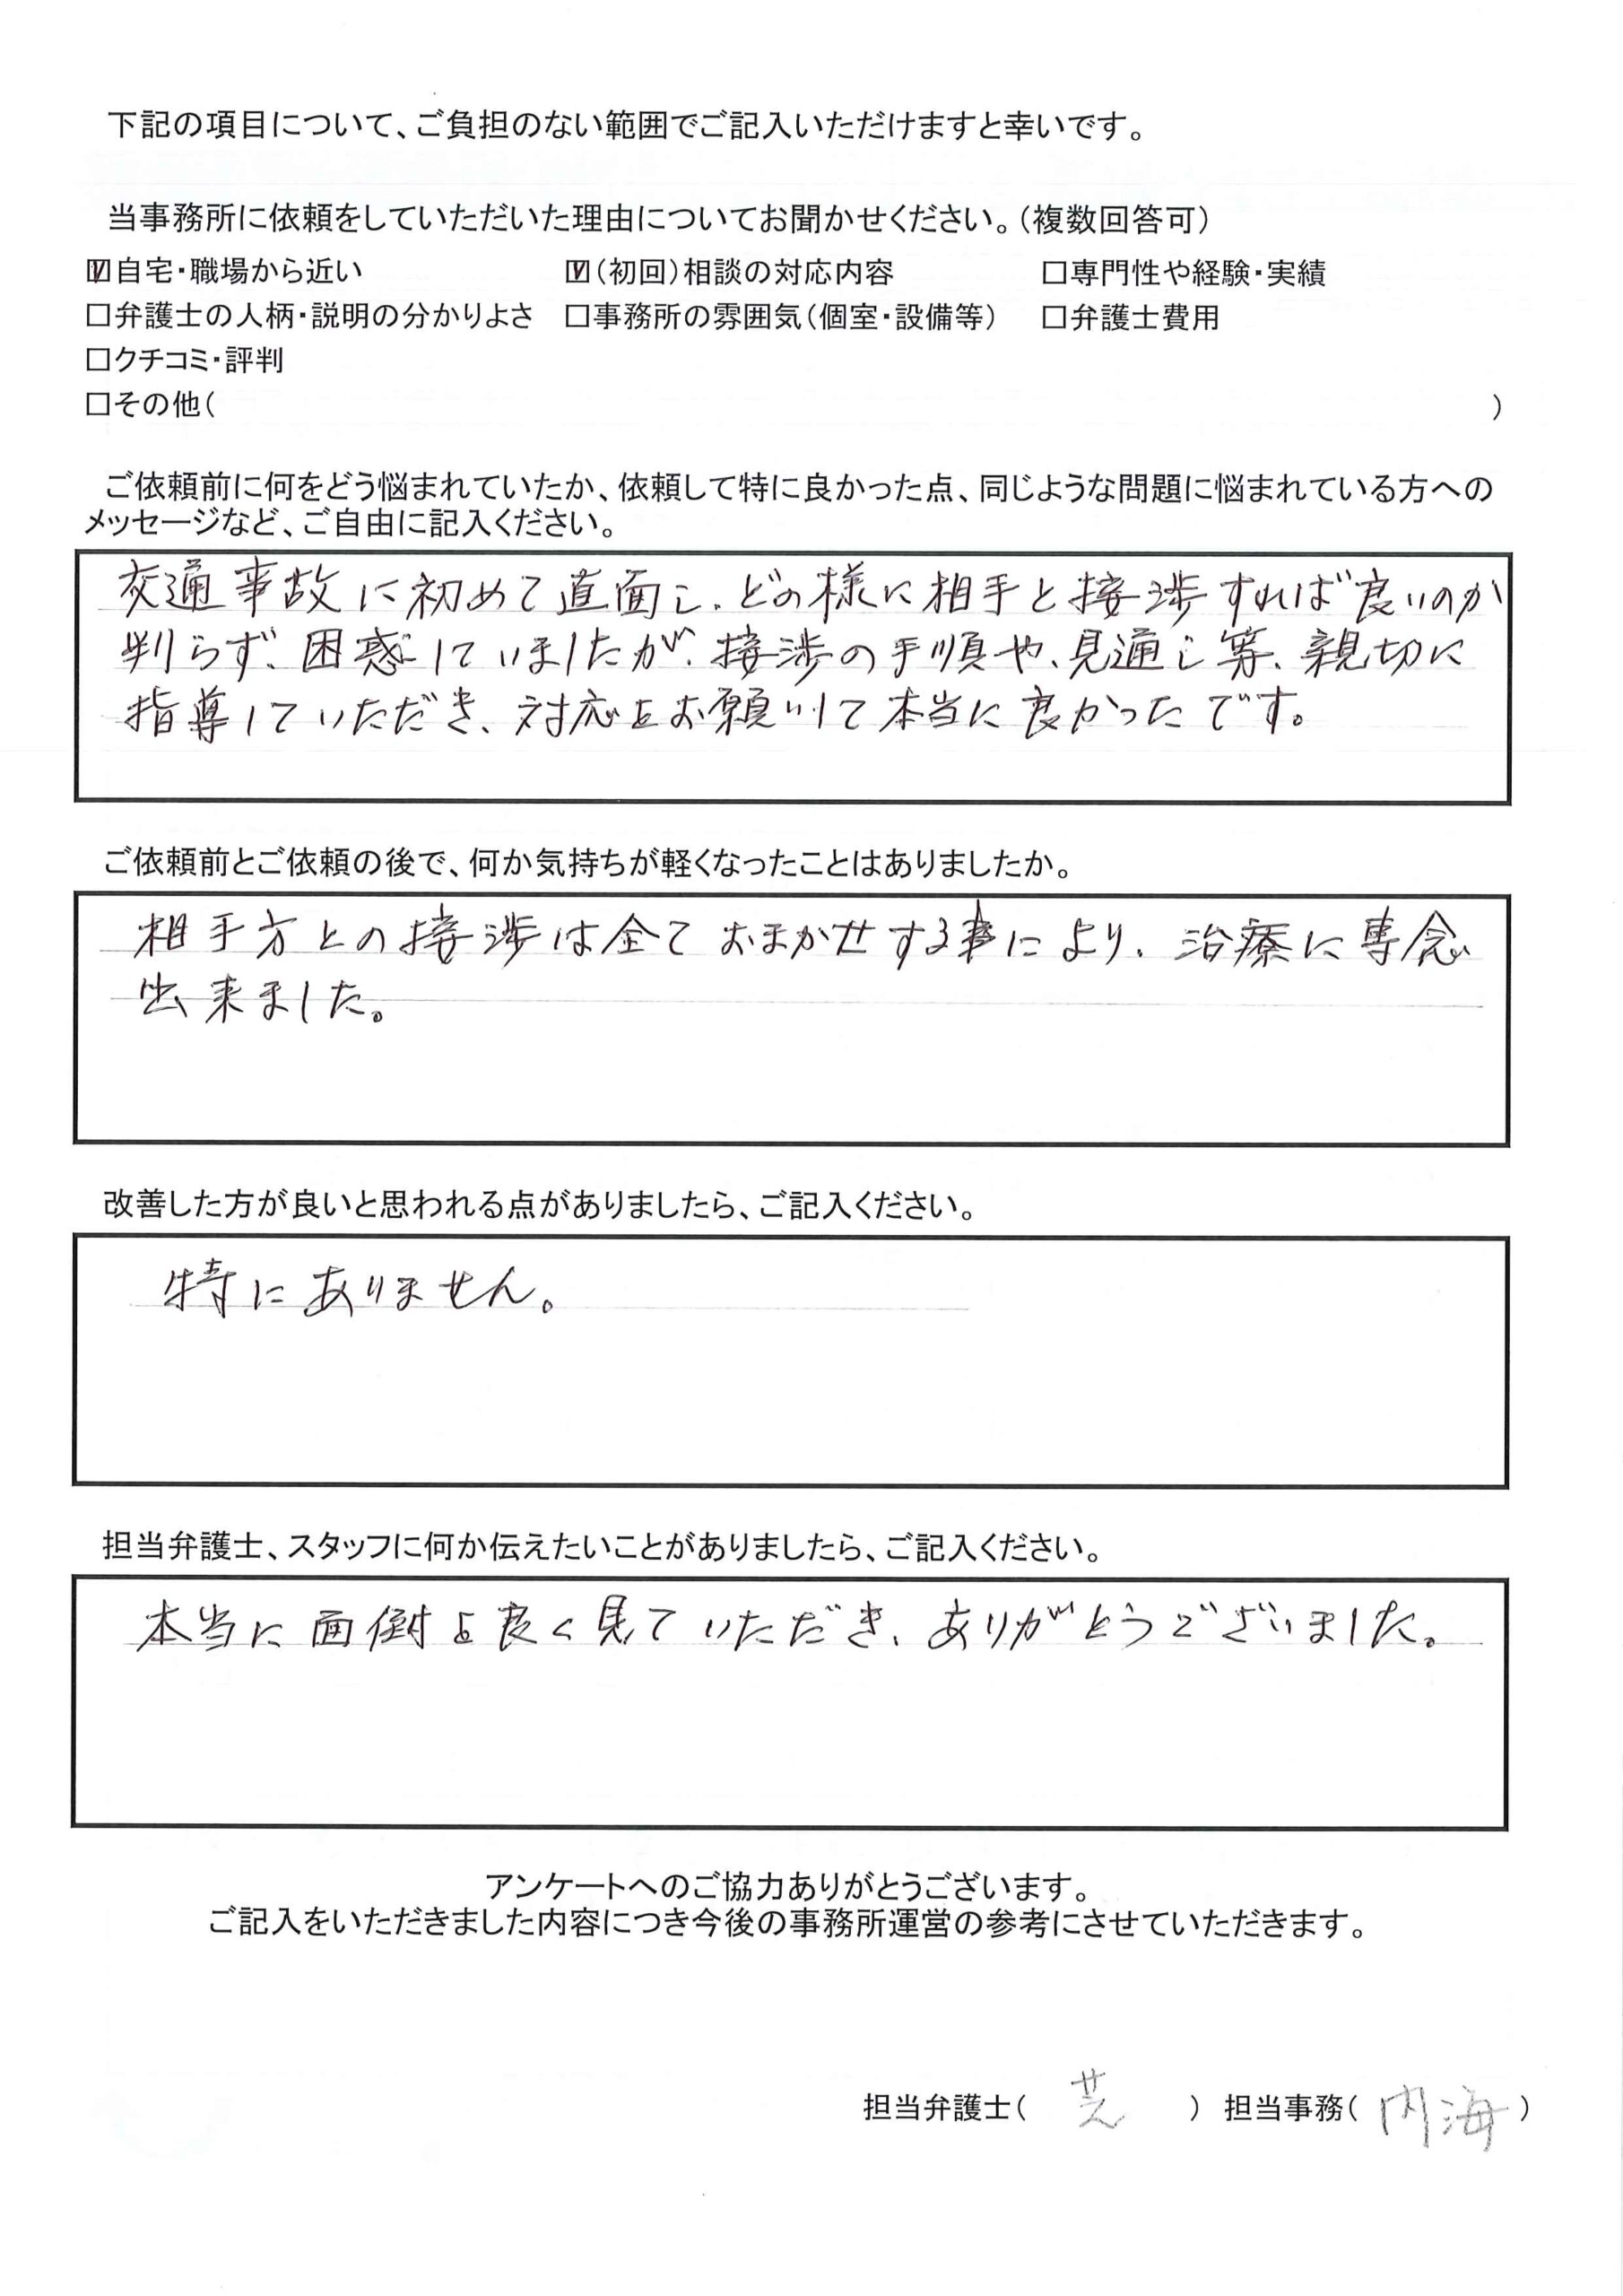 下記の項目について、ご負担のない範囲でご記入いただけますと幸いです。
当事務所に依頼をしていただいた理由についてお聞かせください。（複数回答可）
☑自宅・職場から近い ☑（初回）相談の対応内容 □専門性や経験・実績
□弁護士の人柄・説明の分かりよさ □事務所の雰囲気（個室・設備等） □弁護士費用
□クチコミ・評判
□その他（ ）
ご依頼前に何をどう悩まれていたか、依頼して特に良かった点、同じような問題に悩まれている方への
メッセージなど、ご自由に記入ください。
交通事故に初めて直面し、どの様に相手と接渉すれば良いのか
判らず、困惑していましたが、接渉の手順や、見通し等、親切に
指導していただき、対応をお願いして本当に良かったです。
ご依頼前とご依頼の後で、何か気持ちが軽くなったことはありましたか。
相手方との接渉は全ておまかせする事により、治療に専念
出来ました。
改善した方が良いと思われる点がありましたら、ご記入ください。
特にありません。
担当弁護士、スタッフに何か伝えたいことがありましたら、ご記入ください。
本当に面倒を良く見ていただき、ありがとうございました。
アンケートへのご協力ありがとうございます。
ご記入をいただきました内容につき今後の事務所運営の参考にさせていただきます。
担当弁護士（ 芝 ） 担当事務（ 内海 ）